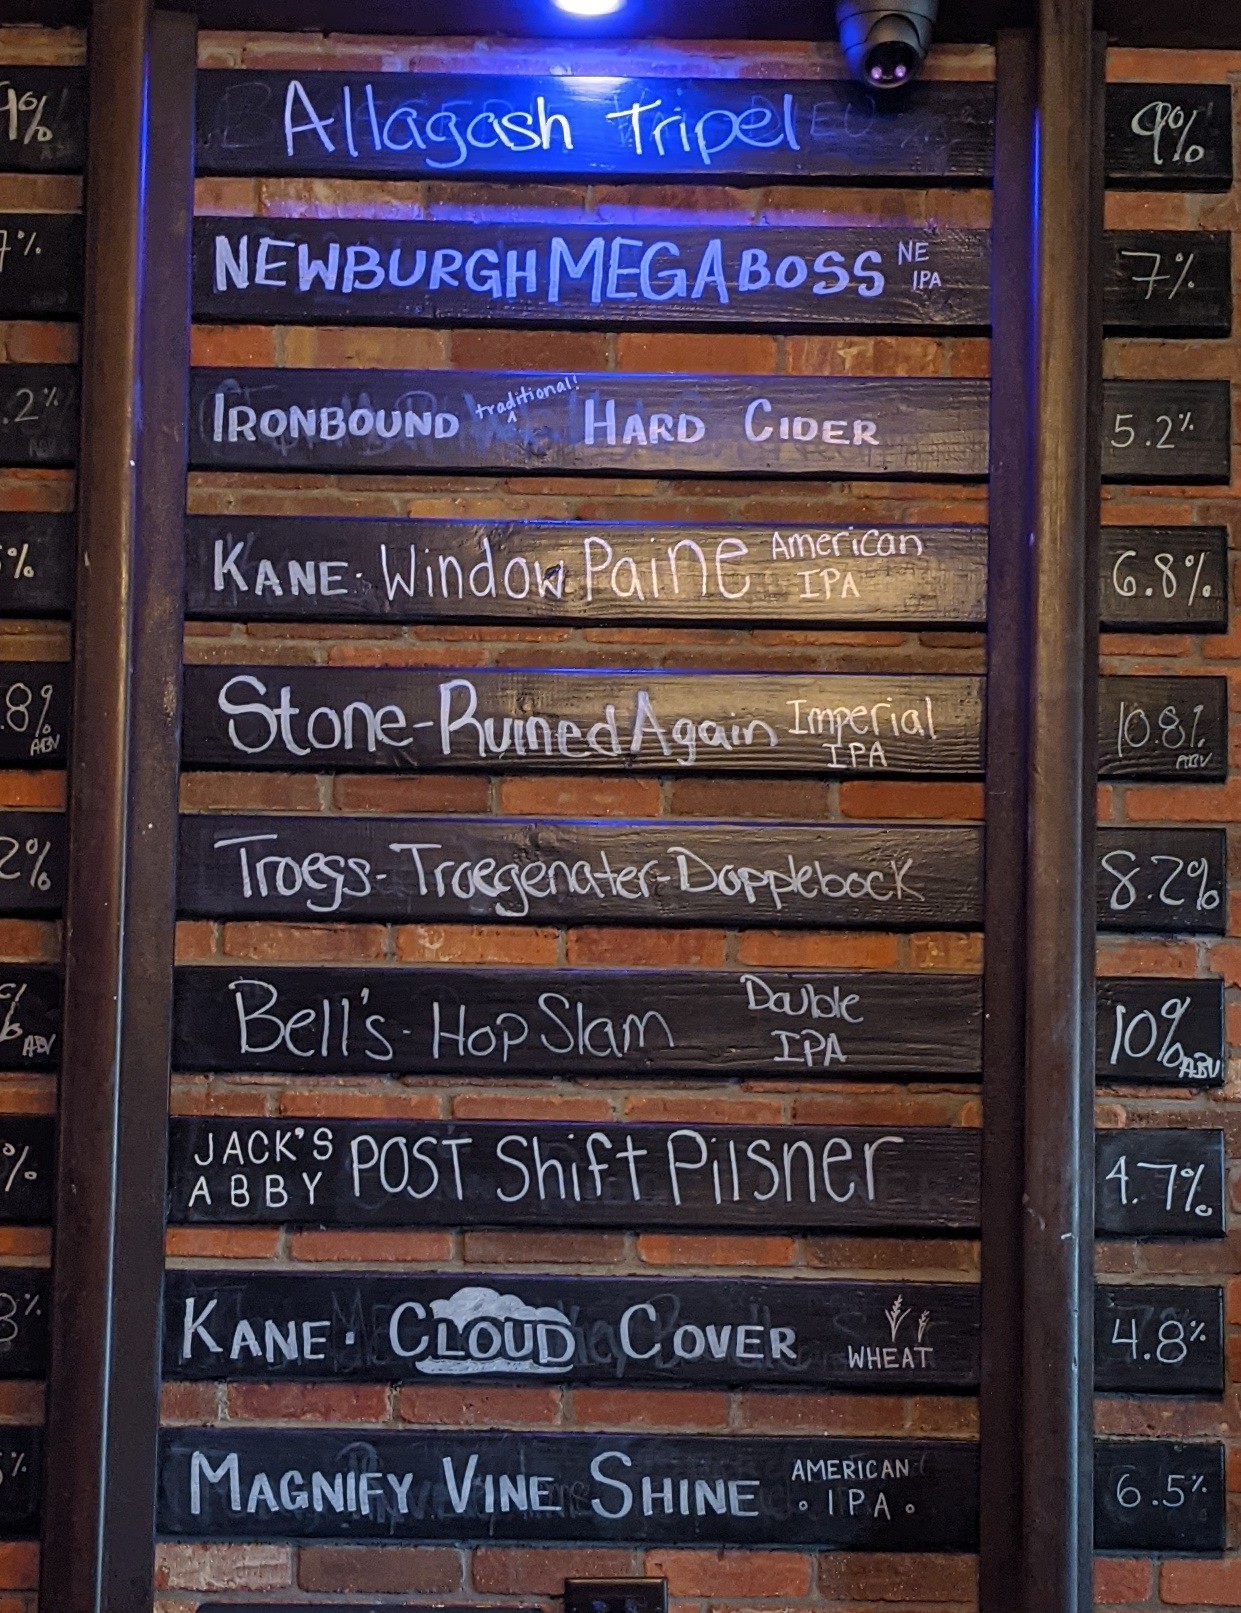 9%
Allagash Tripel 9%
7%
NEWBURGH MEGA BOSS NE IPA 7%
.2%
IRONBOUND traditional! HARD CIDER 5.2%
%
KANE · Window Paine American IPA 6.8%
.8% ABV
Stone - Ruined Again Imperial IPA 10.8% ABV
2%
Troegs - Troegenater - Dopplebock 8.2%
% ABV
Bell's - Hop Slam Double IPA 10% ABV
%
JACK'S ABBY POST Shift Pilsner 4.7%
8%
KANE · CLOUD COVER WHEAT 4.8%
%
MAGNIFY VINE SHINE AMERICAN · IPA · 6.5%